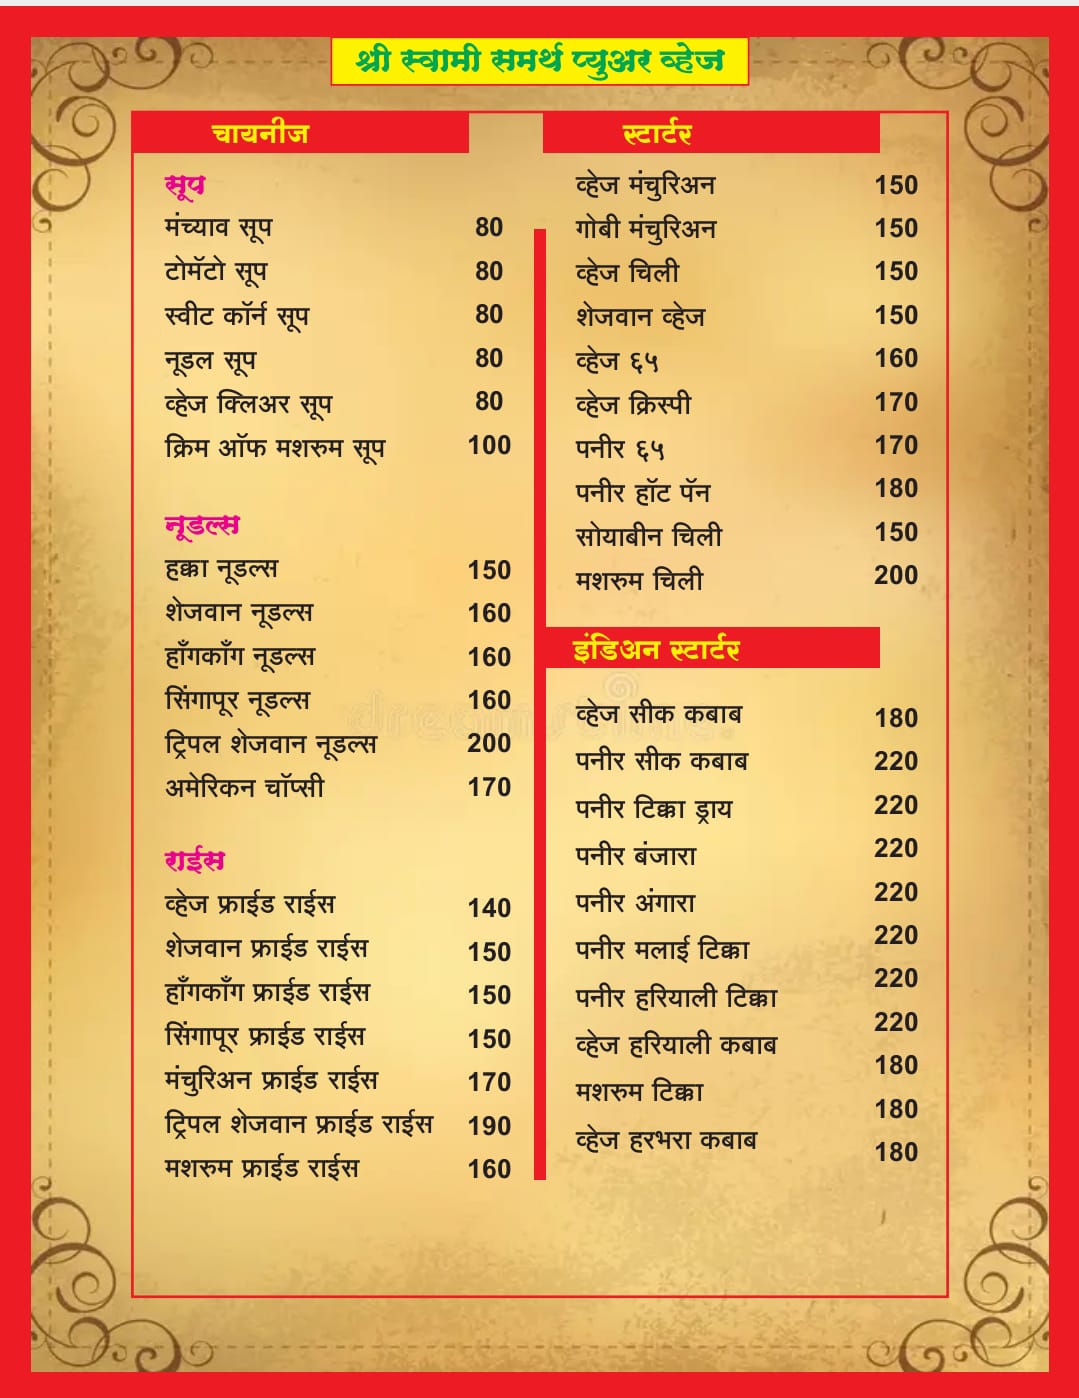 श्री स्वामी समर्थ प्युअर व्हेज
चायनीज
सूप
मंच्याव सूप 80
टोमॅटो सूप 80
स्वीट कॉर्न सूप 80
नूडल सूप 80
व्हेज क्लिअर सूप 80
क्रिम ऑफ मशरुम सूप 100
नूडल्स
हक्का नूडल्स 150
शेजवान नूडल्स 160
हाँगकाँग नूडल्स 160
सिंगापूर नूडल्स 160
ट्रिपल शेजवान नूडल्स 200
अमेरिकन चॉप्सी 170
राईस
व्हेज फ्राईड राईस 140
शेजवान फ्राईड राईस 150
हाँगकाँग फ्राईड राईस 150
सिंगापूर फ्राईड राईस 150
मंचुरिअन फ्राईड राईस 170
ट्रिपल शेजवान फ्राईड राईस 190
मशरुम फ्राईड राईस 160
स्टार्टर
व्हेज मंचुरिअन 150
गोबी मंचुरिअन 150
व्हेज चिली 150
शेजवान व्हेज 150
व्हेज ६५ 160
व्हेज क्रिस्पी 170
पनीर ६५ 170
पनीर हॉट पॅन 180
सोयाबीन चिली 150
मशरुम चिली 200
इंडिअन स्टार्टर
व्हेज सीक कबाब 180
पनीर सीक कबाब 220
पनीर टिक्का ड्राय 220
पनीर बंजारा 220
पनीर अंगारा 220
पनीर मलाई टिक्का 220
पनीर हरियाली टिक्का 220
व्हेज हरियाली कबाब 220
मशरुम टिक्का 180
व्हेज हरभरा कबाब 180
180
dreamstime